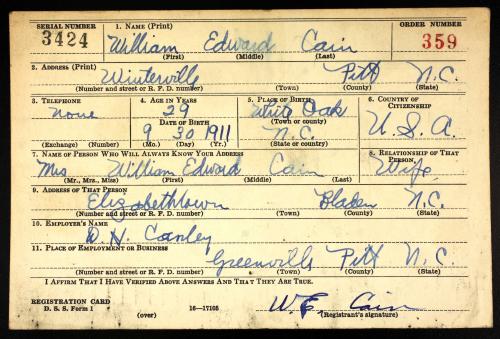 SERIAL NUMBER 1. NAME (Print) ORDER NUMBER
3424 William Edward Cain 359
(First) (Middle) (Last)
2. ADDRESS (Print)
Winterville Pitt N.C.
(Number and street or R. F. D. number) (Town) (County) (State)
3. TELEPHONE 4. AGE IN YEARS 5. PLACE OF BIRTH 6. COUNTRY OF CITIZENSHIP
None 29 White Oak
DATE OF BIRTH (Town or county)
9 30 1911 N.C. U.S.A.
(Exchange) (Number) (Mo.) (Day) (Yr.) (State or country)
7. NAME OF PERSON WHO WILL ALWAYS KNOW YOUR ADDRESS 8. RELATIONSHIP OF THAT PERSON
Mrs William Edward Cain Wife
(Mr., Mrs., Miss) (First) (Middle) (Last)
9. ADDRESS OF THAT PERSON
Elizabethtown Bladen N.C.
(Number and street or R. F. D. number) (Town) (County) (State)
10. EMPLOYER'S NAME
D. H. Conley
11. PLACE OF EMPLOYMENT OR BUSINESS
Greenville Pitt N.C.
(Number and street or R. F. D. number) (Town) (County) (State)
I AFFIRM THAT I HAVE VERIFIED ABOVE ANSWERS AND THAT THEY ARE TRUE.
REGISTRATION CARD
D. S. S. Form 1 (over) 16—17105 W. E. Cain
(Registrant's signature)